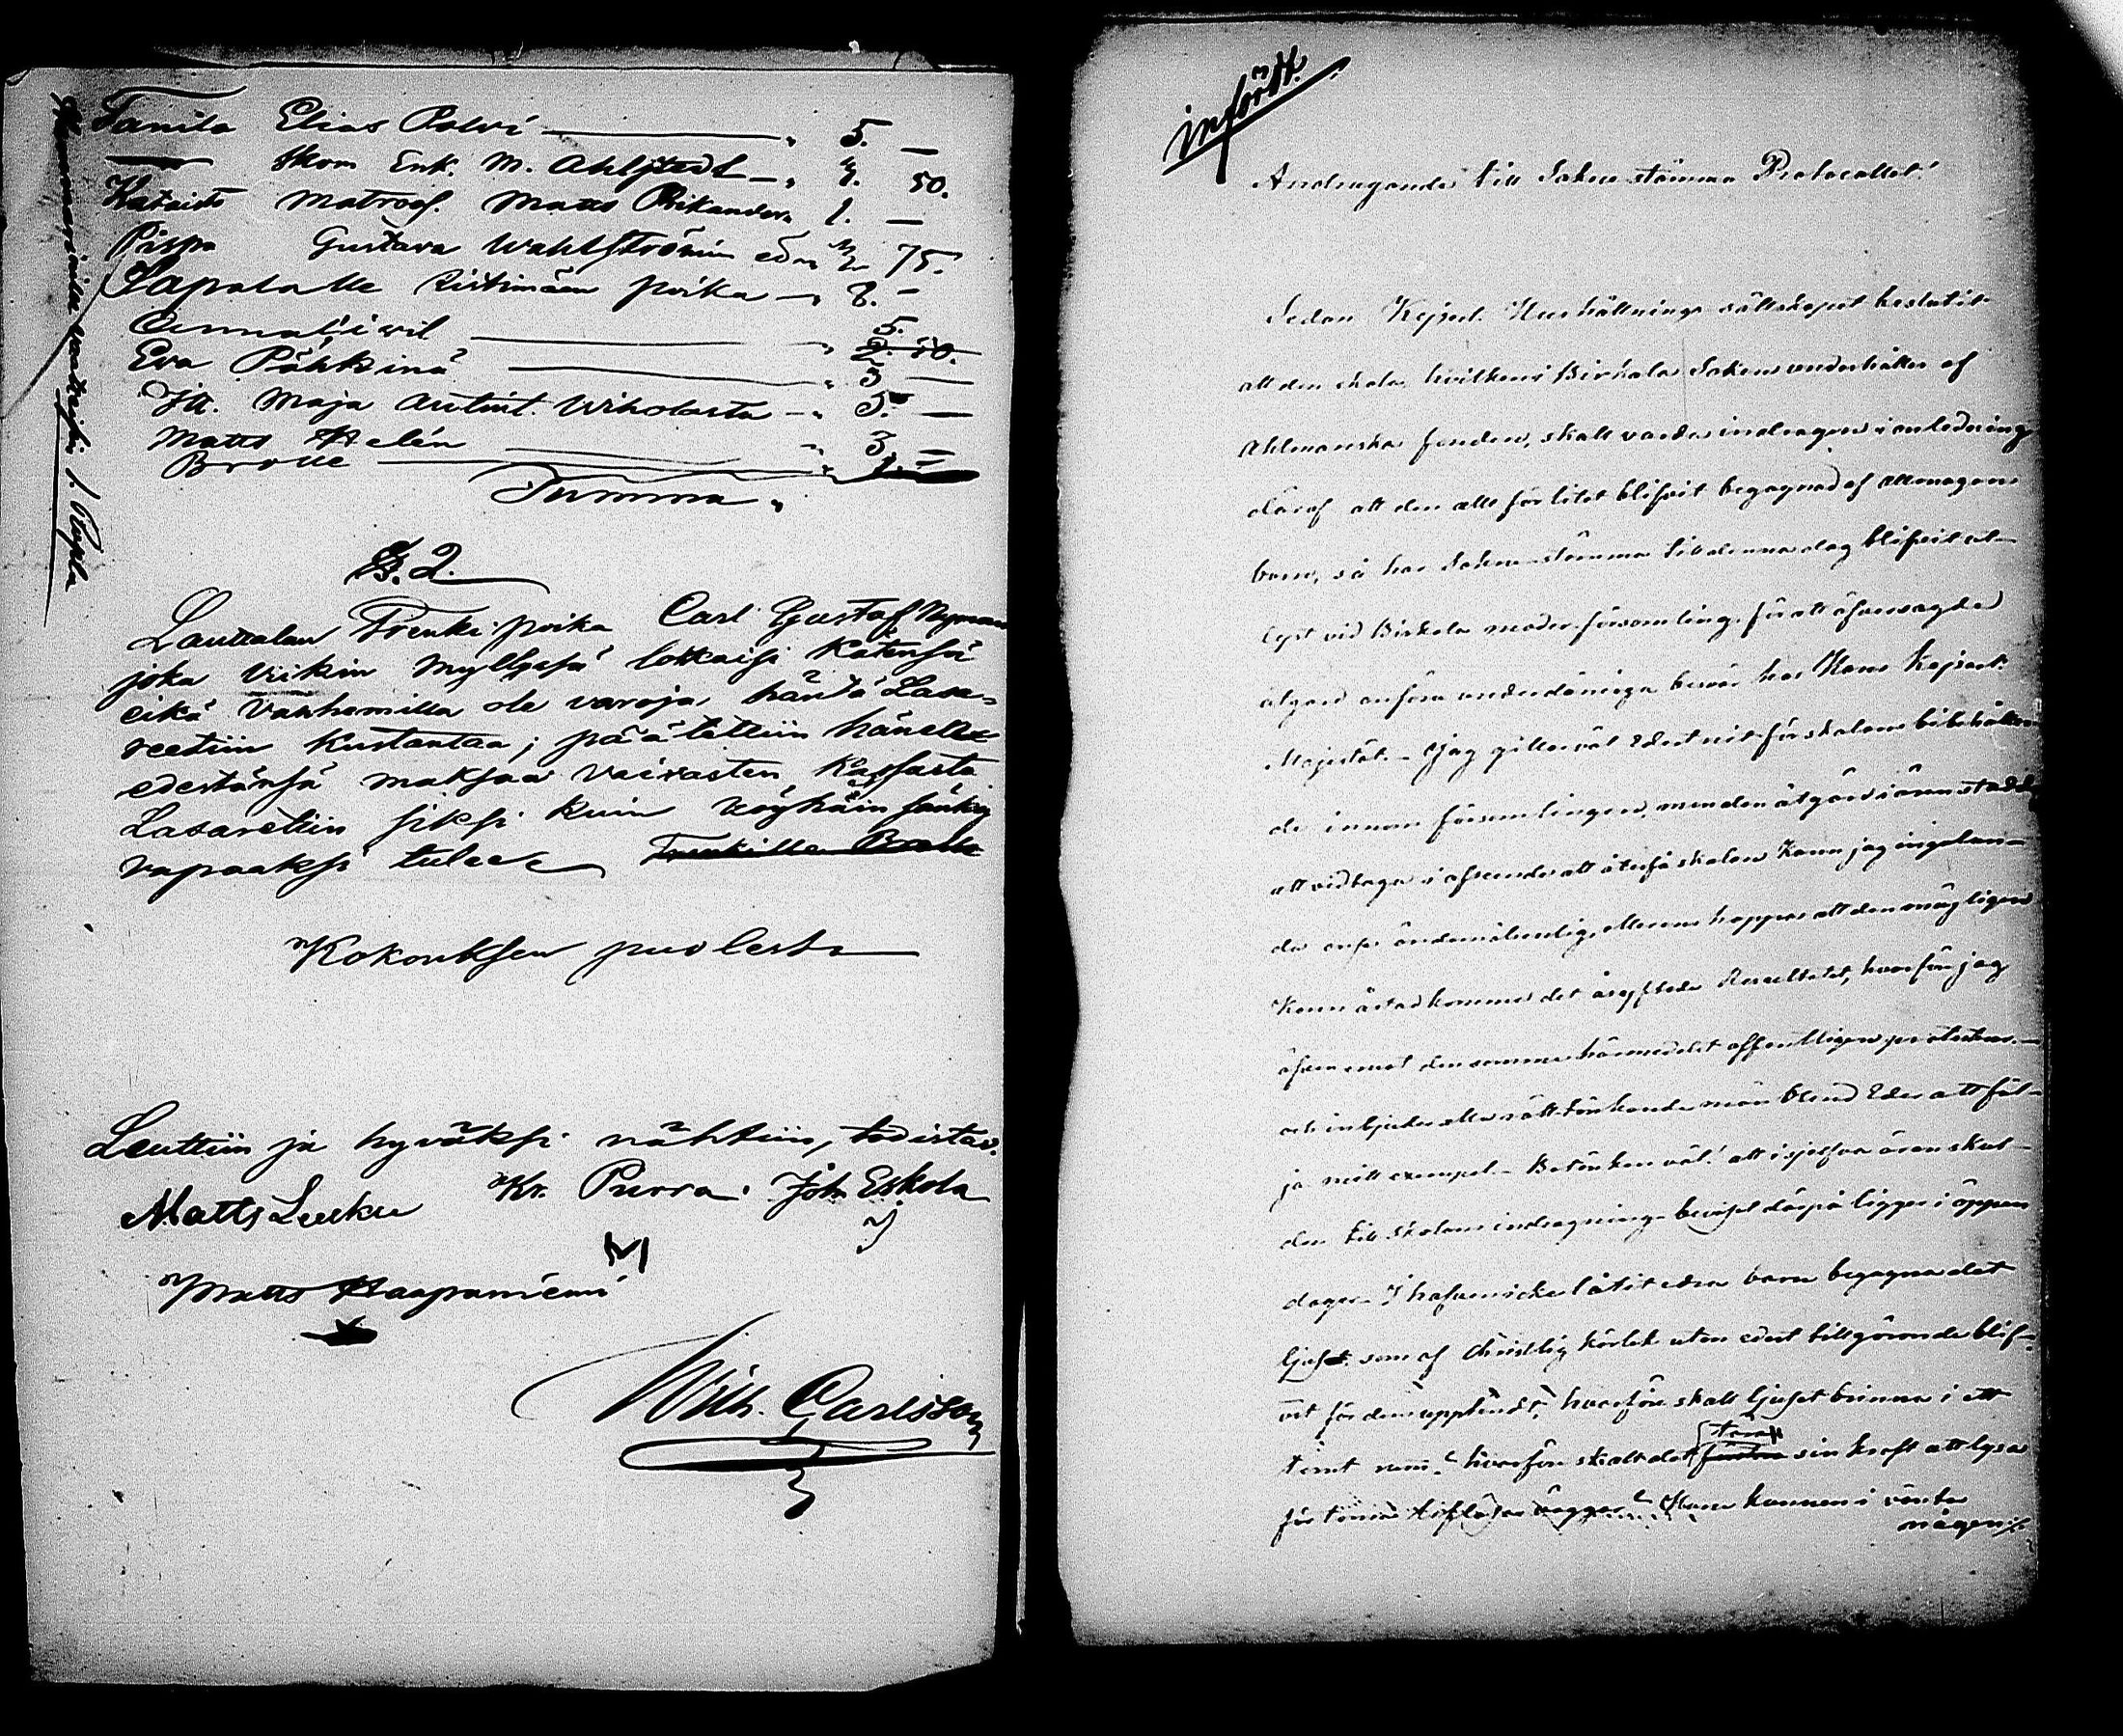 Tanila Elias Polvi — „ 5. —
Skom Enk. M. Ahlstedt — „ 50.
Matros. Matts Rikander „ 1. —
Gustava Wahlströmin 75.
Ristimäen poika — „ 8. —
5.
Eva Pähkinä — „ 3 —
Itt. Maja Antint. Wiholasta — „ 5. —
Matts Helén — „ 3. —
Brolle — „
Summa „
§. 2.
Lauttalan Trenki poika Carl Gustaf Nyman
joka Viikin myllysä loukkaisi Kätensä
eikä Vanhemilla ole varoja, häntä Lasa-
reetiin Kustantaa; päätettiin hänelle
edestänsä maksaa Vaivasten Kassasta
Lasaretiin siksi kuin köyhäin sänky
vapaaksi tulee
Kokouksen puolesta
Leuttiin ja hyväksi nähtiin, todistav.
Matts Leuku Kr. Purra. Joh Eskola
Matts Haapaniemi
Wilh. Carlsson
infördt.
Andragande till Sockne stämma Protocollet!
Sedan Kejserl. Hushållnings sällskapet beslutit
att den skola, hvilken i Birkala Soken underhålles af
Ahlmanska fonden, skall varda indragen i anledning
deraf att den allt för litet blifvit begagnad af Allmogens
barn, så har Sokne-stämma till denna dag blifvit ut-
lyst vid Birkala moder-församling, för att öfver sagde
åtgärd anföra underdåniga besvär hos Hans Kejserl.
Majestät. — Jag gillar väl Edert nit för skolans bibehållan-
de innom församlingen, men den åtgärd i ären stadde
att vidtaga i afseende att återfå skolan kann jag ingalun-
da anse ändamålsenlig, ellerens hoppas att den möjligen
kann åstadkomma det åsyftade Resultatet, hvarföre jag
äfven emot den samma härmedelst offentligen protesterar —
och inbjuder alla rätt tänkande män bland Eder att föl-
ja mitt exempel. — Betänken väl! att i sjelfva ären skul-
den till skolans indragning — beviset därpå ligger i öppen
dager. I hafven icke låtit edra barn begagna det
ljus som af Christlig kärlek utan edert tillgörande blif-
vit för dem upptändt; hvarföre skall ljuset brinna i ett
tomt rum? hvarföre skall det sin kraft att lysa
för tomma väggar? Huru kunnen i vänta
någon